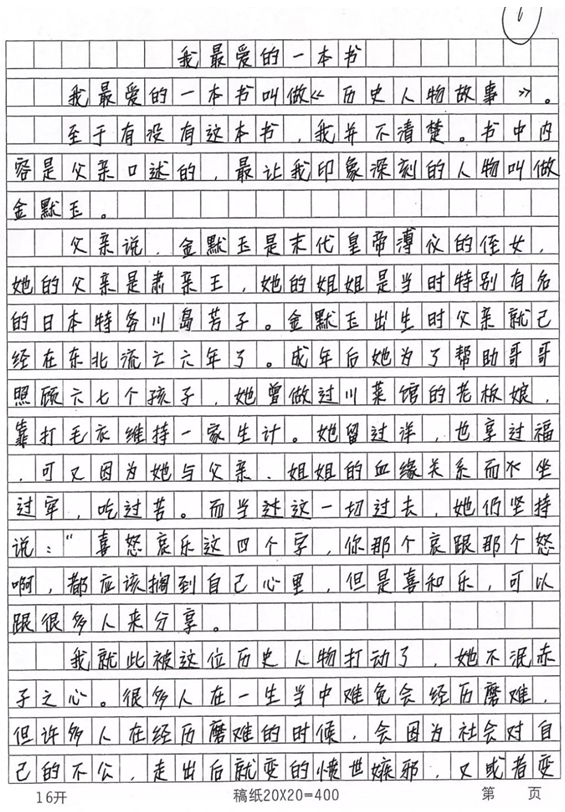 1
我最爱的一本书
我最爱的一本书叫做《历史人物故事》。
至于有没有这本书，我并不清楚。书中内
容是父亲口述的，最让我印象深刻的人物叫做
金默玉。
父亲说，金默玉是末代皇帝溥仪的侄女，
她的父亲是肃亲王，她的姐姐是当时特别有名
的日本特务川岛芳子。金默玉出生时父亲就已
经在东北流亡六年了。成年后她为了帮助哥哥
照顾六七个孩子，她曾做过川菜馆的老板娘，
靠打毛衣维持一家生计。她留过洋，也享过福
，可又因为她与父亲、姐姐的血缘关系而坐
过牢，吃过苦。而当这一切过去，她仍坚持
说：“喜怒哀乐这四个字，你那个哀跟那个怒
啊，都应该搁到自己心里，但是喜和乐，可以
跟很多人来分享。
我就此被这位历史人物打动了，她不泯赤
子之心。很多人在一生当中难免会经历磨难，
但许多人在经历磨难的时候，会因为社会对自
己的不公，走出后就变的愤世嫉邪，又或者变
16开 稿纸20X20=400 第 页